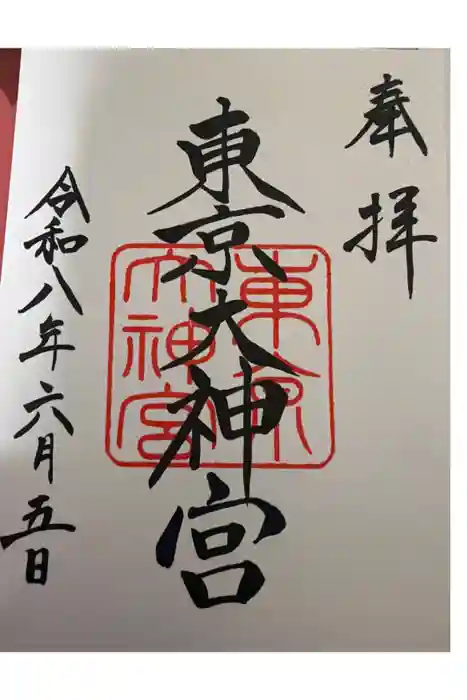 奉拝
東京大神宮
東京
大神宮
令和八年六月五日